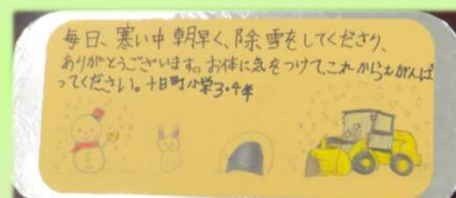 毎日、寒い中朝早く、除雪をしてくださり、
ありがとうございます。お体に気をつけて、これからもがんば
ってください。十日町小学3・4年